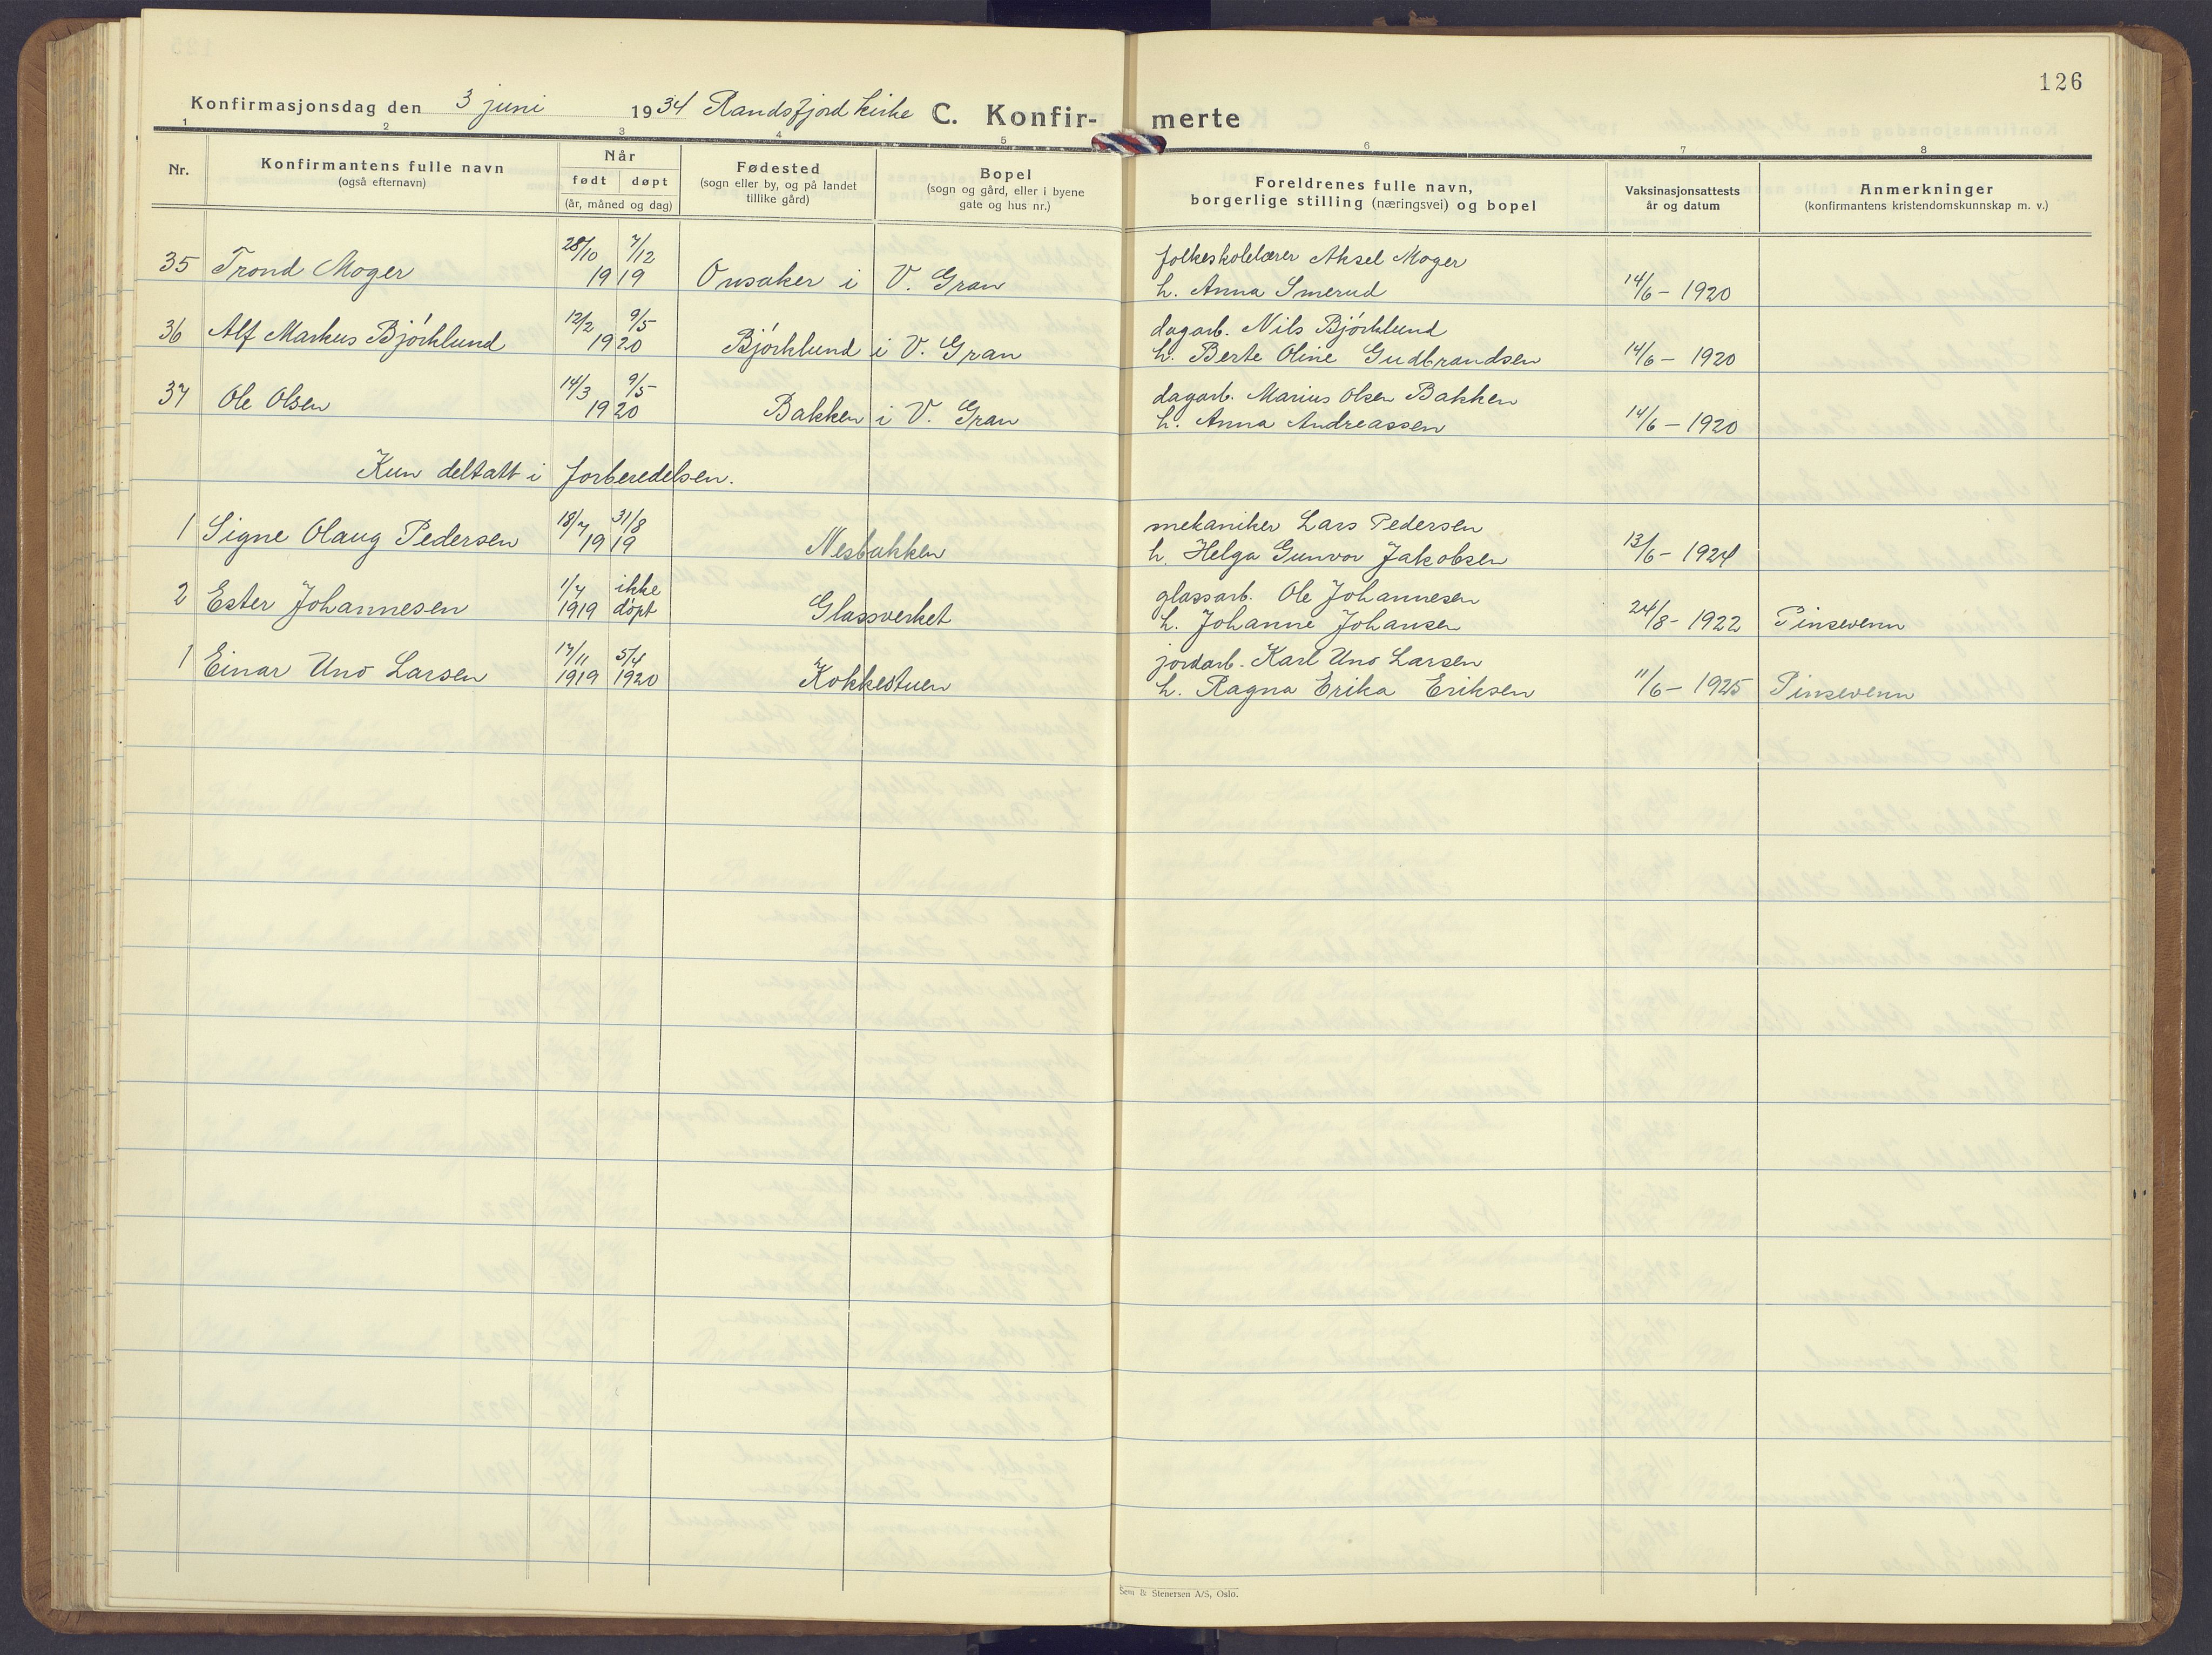 126
Konfirmasjonsdag den 3 juni 1934 Randsfjord kirke C. Konfir- merte
1 2 3 4 5 6 7 8
Nr.
Konfirmantens fulle navn
(også efternavn)
Når
født døpt
(år, måned og dag)
Fødested
(sogn eller by, og på landet
tillike gård)
Bopel
(sogn og gård, eller i byene
gate og hus nr.)
Foreldrenes fulle navn,
borgerlige stilling (næringsvei) og bopel
Vaksinasjonsattests
år og datum
Anmerkninger
(konfirmantens kristendomskunnskap m. v.)
28/10 7/12 folkeskolelærer Aksel Moger
35 Trond Moger 1919 Onsaker i V. Gran h. Anna Smerud 14/6 - 1920
12/2 9/5 dagarb. Nils Bjórklund
36 Alf Markus Bjórklund 1920 Bjórklund i V. Gran h. Berte Oline Gudbrandsen 14/6 - 1920
14/3 9/5 dagarb. Marius Olsen Bakken
37 Ole Olsen 1920 Bakken i V. Gran h. Anna Andreassen 14/6 - 1920
Kun deltatt i forberedelsen.
18/7 31/8 mekaniker Lars Pedersen
1 Signe Olaug Pedersen 1919 Nesbakken h. Helga Gunvor Jakobsen 13/6 - 1924
1/7 ikke glassarb. Ole Johannesen
2 Ester Johannesen 1919 dópt Glassverket h. Johanne Johansen 24/8 - 1922 Pinsevenn
17/11 5/4 jordarb. Karl Uno Larsen
1 Einar Uno Larsen 1919 1920 Kokkestuen h. Ragna Erika Eriksen 11/6 - 1925 Pinsevenn
Sem & Stenersen A/S, Oslo.